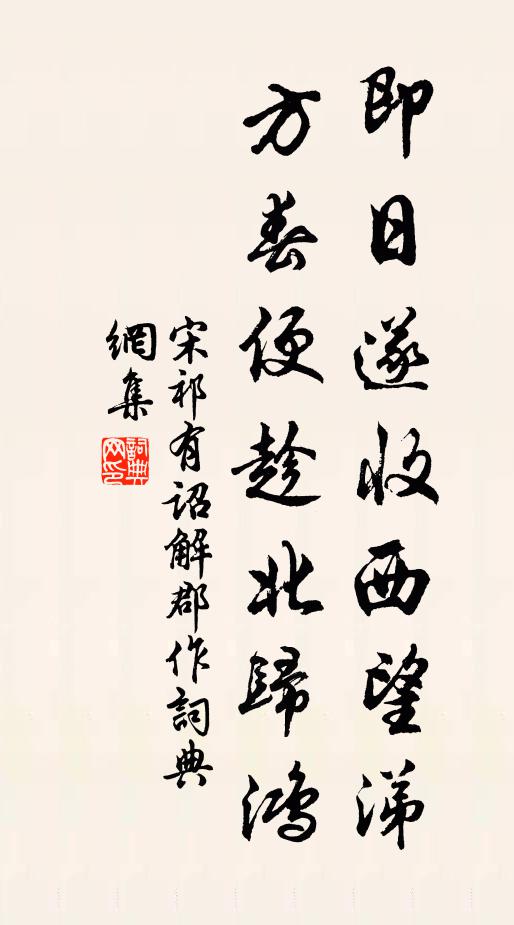 即日遂收西望涕
方春便趁北歸鴻
宋祁有詔解郡作詞典
網集
詞典網印